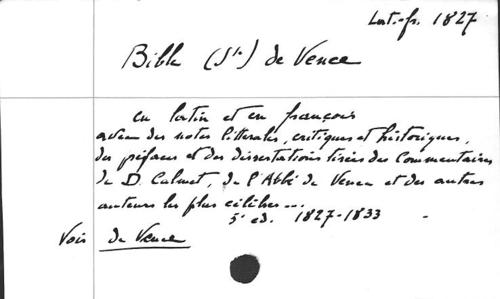 Lat.-fr. 1827
Bible (Ste) de Vence
en latin et en françois
avec des notes littérales, critiques et historiques,
des préfaces et des dissertations tirées des Commentaires
de D. Calmet, de l'Abbé de Vence et des autres
auteurs les plus célèbres...
5e ed. 1827-1833
Voir de Vence